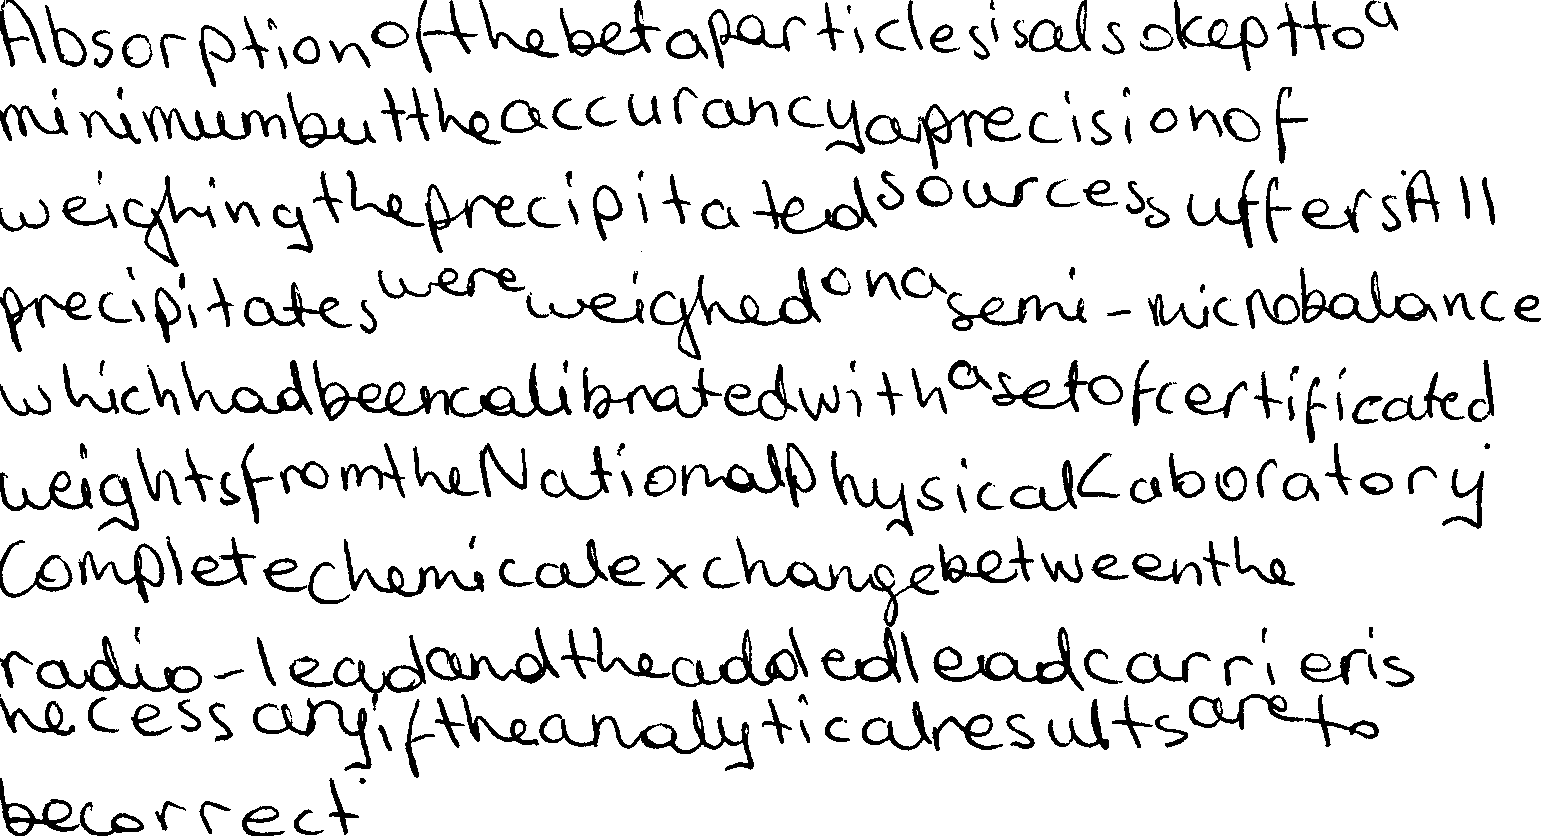 Absorption of the beta particles is also kept to a
minimum but the accurancy a precision of
weighing the precipitated sources suffers. All
precipitates were weighed on a semi-micro balance
which had been calibrated with a set of certificated
weights from the National Physical Laboratory.
Complete chemical exchange between the
radio-lead and the added lead carrier is
necessary if the analytical results are to
be correct.